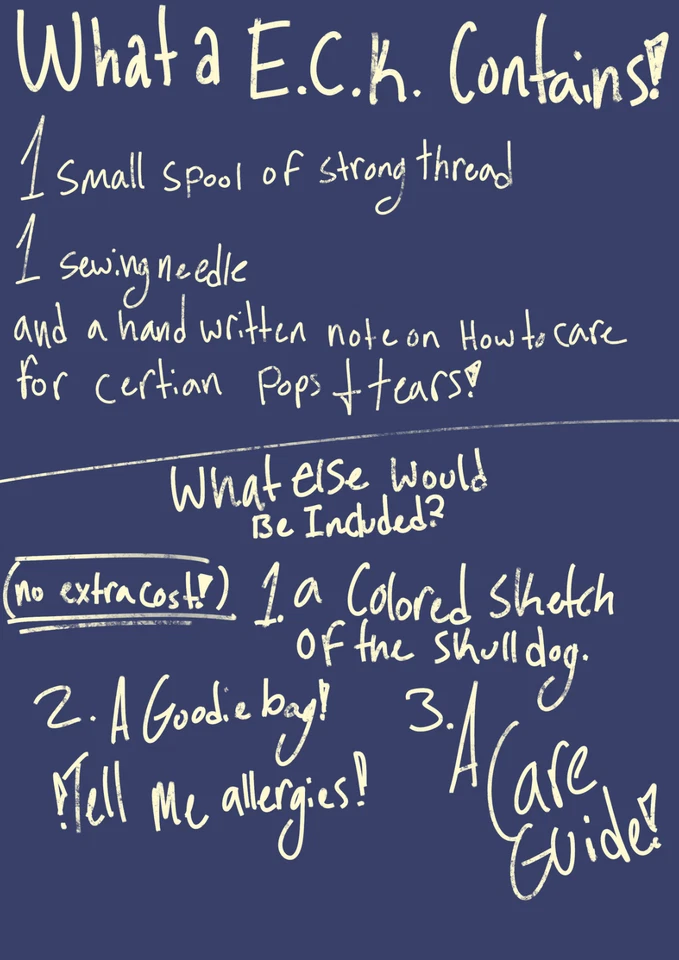 What a E.C.K. Contains!
1 small spool of strong thread
1 sewing needle
and a hand written note on How to care
for certian Pops + tears!
What else would
Be Included?
(no extra cost!)
1. a Colored sketch
of the skull dog.
2. A Goodie bag!
!Tell me allergies!
3. A
Care
Guide!